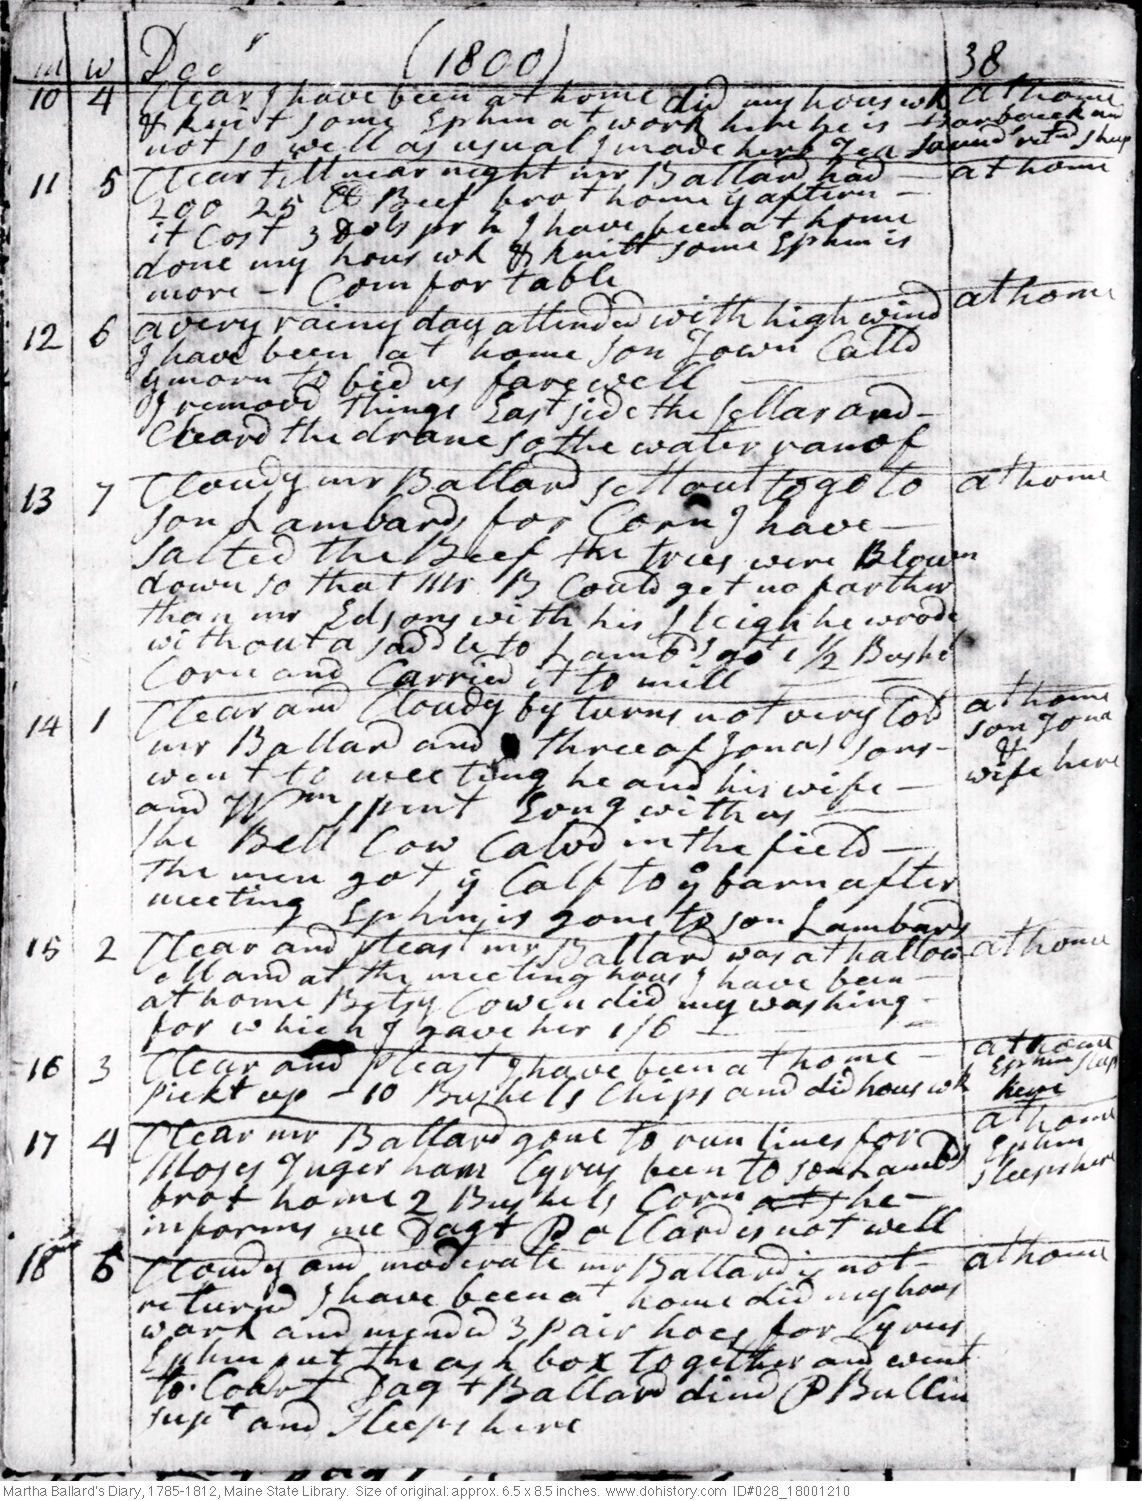 m w Decr (1800) 38
10 4 Clear I have been at home did my hous wk at home
& knit some Ephm at work here he is
not so well as usual I made here
11 5 Clear till near night mr Ballard had at home
200 25 lb Beef brot home y aftern
it Cost 3 Dols pr h I have been at home
done my hous wk & knitt some Ephm is
more Comfortable
12 6 a very rainy day attended with high wind at home
I have been at home son Town Calld
y morn to bid us fare well
I removd things East side the sellar and
Cleard the drane so the water ran of
13 7 Cloudy mr Ballard sett out to go to at home
son Lambards for Corn I have
salted the Beef the trees were Blown
down so that Mr B Could get no farther
than mr Edsons with his sleigh he wrode
without a saddle to Lambds got 1 1/2 Bushl
Corn and Carried it to mill
14 1 Clear and Cloudy by turns not very Cold at home
son Jona
mr Ballard and three of Jonas sons
&
went to meeting he and his wife
wife here
and Wm spent Eong with us
the Bell Cow Calvd in the field
the men got y Calf to y barn after
meeting Ephm is gone to son Lambards
15 2 Clear and pleast mr Ballard was at hallow at home
ell and at the meeting hous I have been
at home Betsy Cowen did my washing
for which I gave her 1/6
16 3 Clear and Pleast I have been at home at home
Ephm sleeps
Pickt up 10 Bushels Chips and did hous wk here
17 4 Clear mr Ballard gone to run lines for at home
Ephm
Moses Ingerham Cyrus been to son Lambds
sleeps here
brot home 2 Bushels Corn he
informs me Dagt Pollard is not well
18 5 Cloudy and moderate mr Ballard is not at home
returnd I have been at home did my hous
work and mended 3 pair hoes for Cyrus
Ephm put the ash box together and went
to Court Dagt Ballard dind P Bullin
supt and sleeps here
Martha Ballard's Diary, 1785-1812, Maine State Library. Size of original: approx. 6.5 x 8.5 inches. www.dohistory.com ID#028_18001210